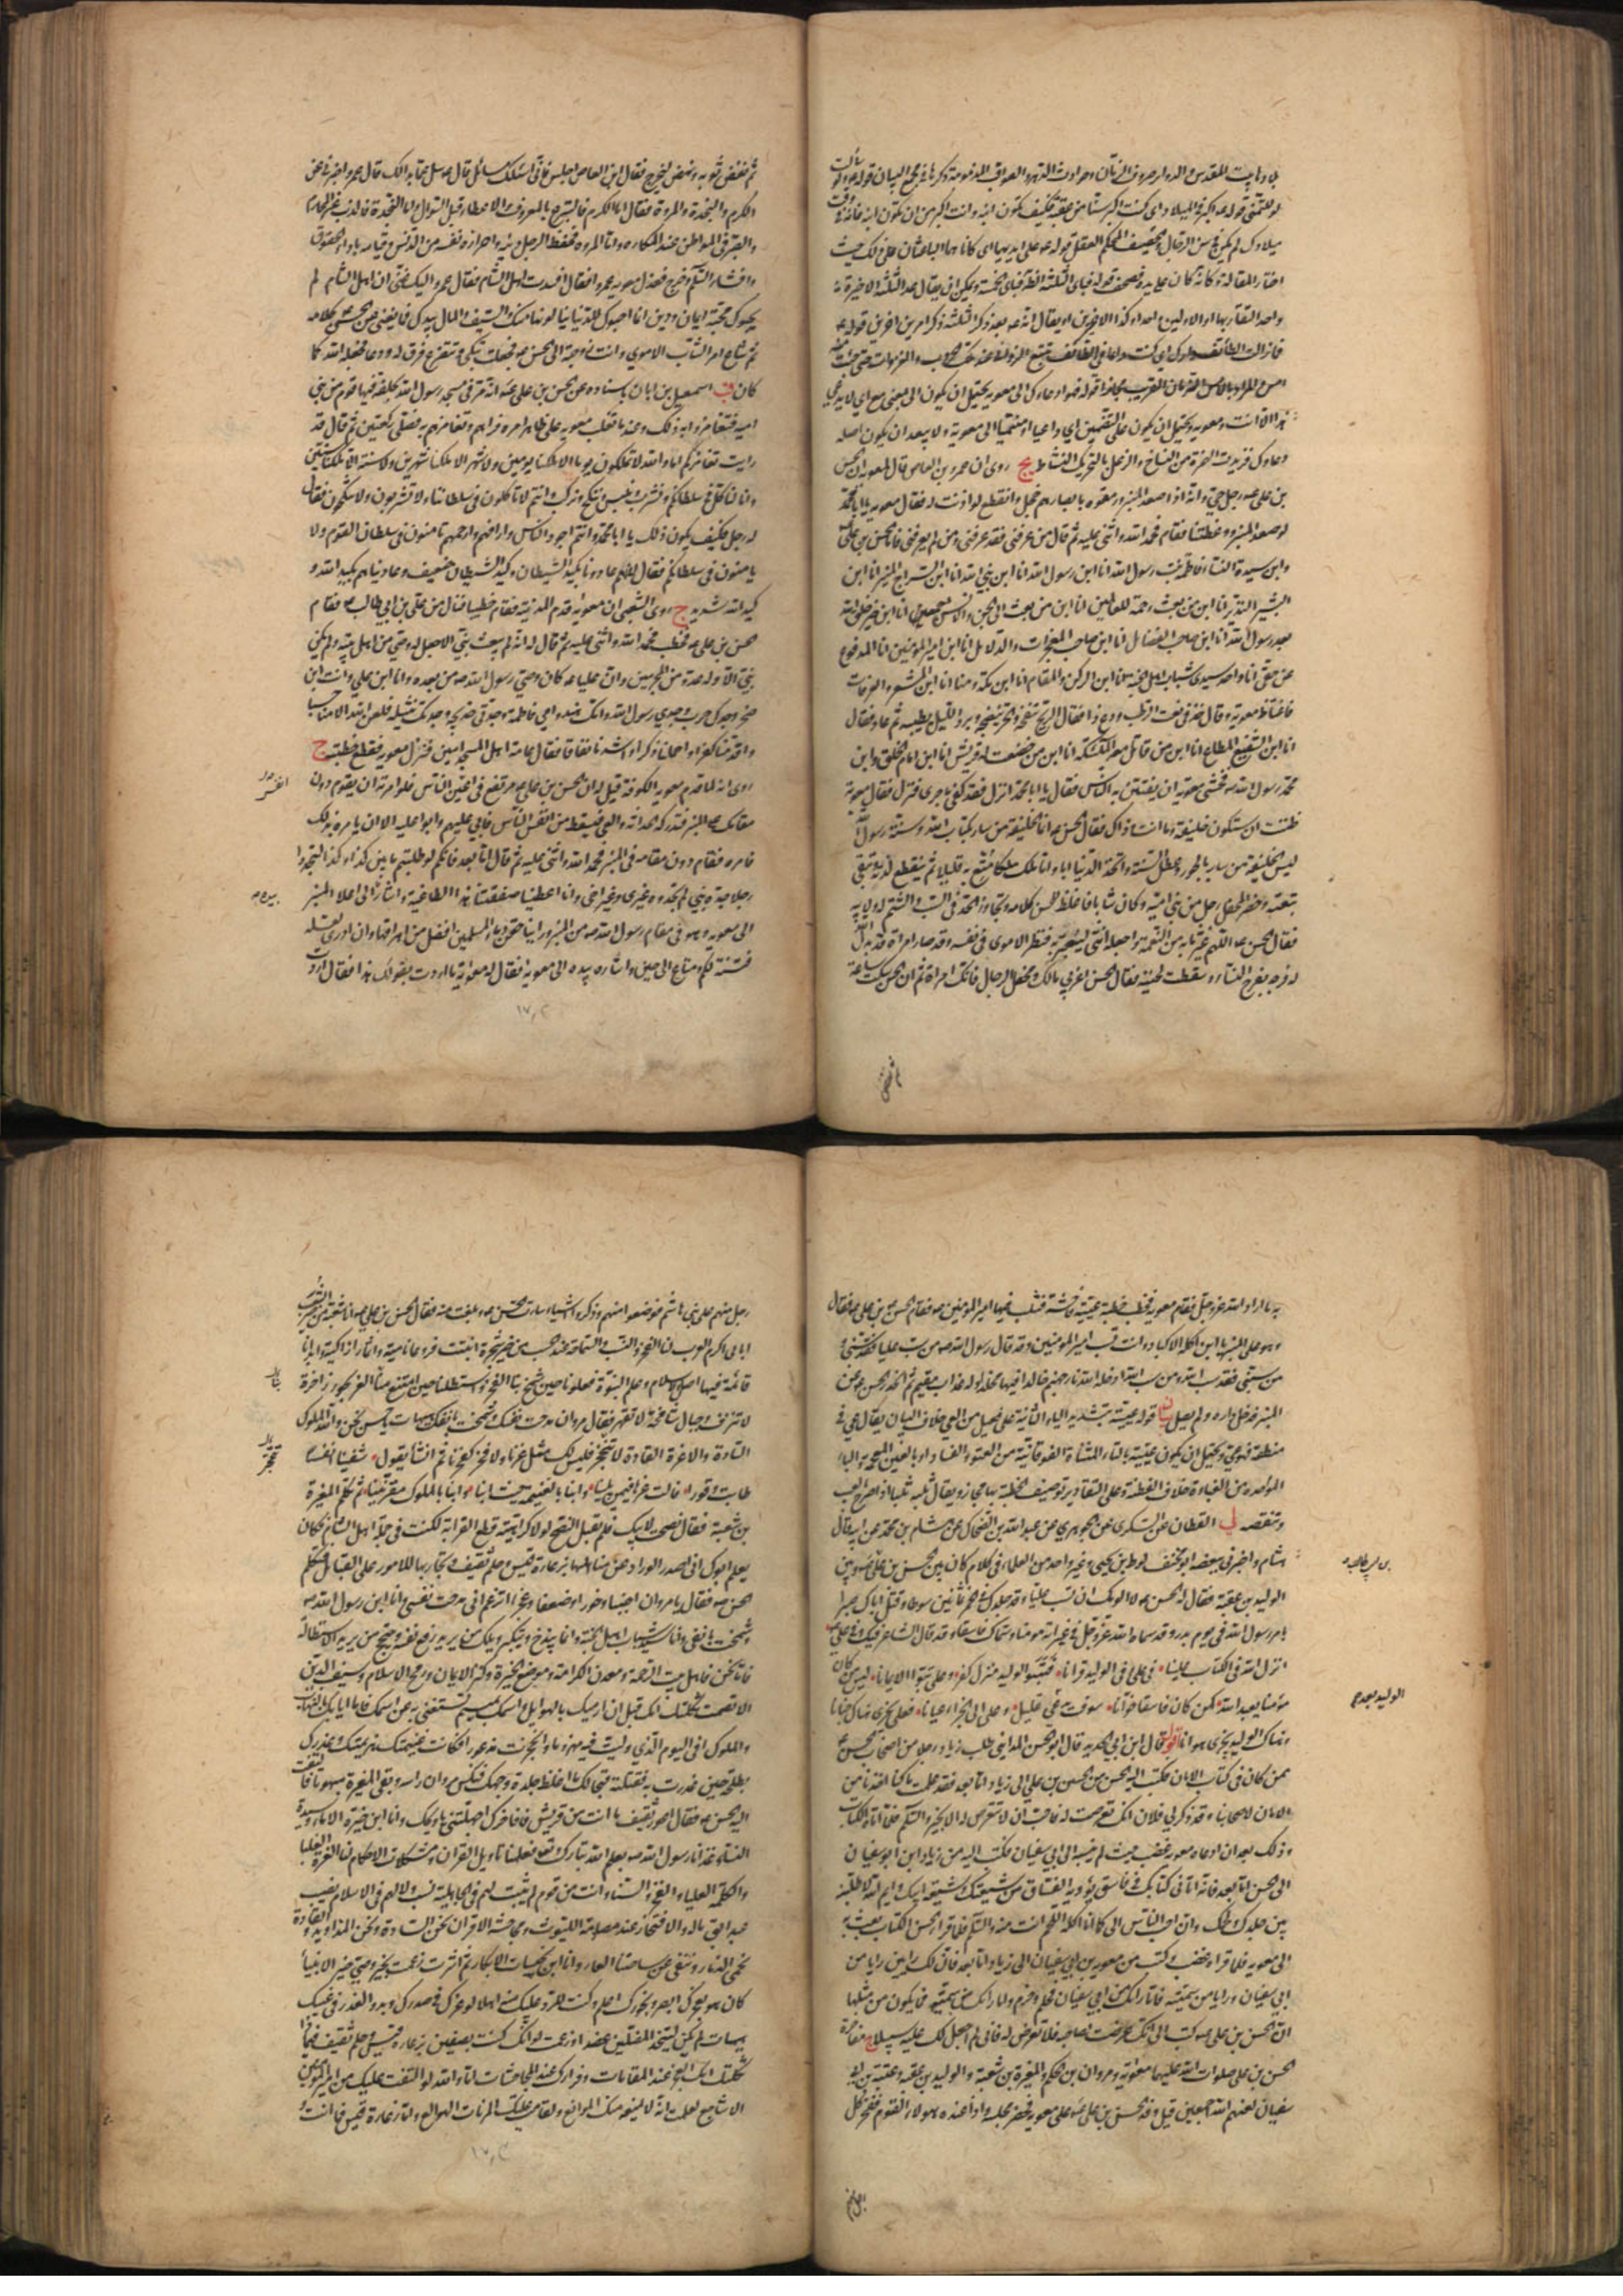 لو لتمتنى قوله عه اكبر فى الميلاد اى كنت اكبر سنا من عقبة فكيف تكون ابنه وانت اكبر من ان تكون ابنه فانه وقت
ميلادك لم يكن فى سن الرجال والحصيف المحكم العقل قوله عه على ايديهما اى كانا هما الباعثان على ذلك حيث
واحد التقاربهما او الاولين واحدا وكذا الاخيرين او يقال انه عه بعد ذكر الثلثة ذكر امرين اخرين قوله عه
هذا الا انت ومعويه ويحتمل ان يكون على التضمين اى داعيا او منتميا الى معوية ولا يبعد ان يكون اصله
يج روى ان عمرو بن العاص قال لمعويه ان الحسن
بن على عه رجل حيى وانه اذا صعد المنبر ورمقوه بابصارهم خجل وانقطع لو اذنت له فقال معويه يا ابا محمد
لو صعدت المنبر ووعظتنا فقام فحمد الله واثنى عليه ثم قال من عرفنى فقد عرفنى ومن لم يعرفنى فانا الحسن بن على
وابن سيدة النساء فاطمة بنت رسول الله انا ابن رسول الله انا ابن نبى الله انا ابن السراج المنير انا ابن
البشير النذير انا ابن من بعث رحمة للعالمين انا ابن من بعث الى الجن والانس اجمعين انا ابن خير خلق الله
بعد رسول الله انا ابن صاحب الفضائل انا ابن صاحب المعجزات والدلائل انا ابن امير المؤمنين انا المدفوع
عن حقى انا واحد سيدى شباب اهل الجنه انا ابن الركن والمقام انا ابن مكة ومنا انا ابن المشعر والعرفات
فاغتاظ معويه وقال خذ فى نعت الرطب ودع ذا فقال الريح تنفخه والحر ينضجه وبرد الليل يطيبه ثم عاد فقال
انا ابن الشفيع المطاع انا ابن من قاتل معه الملئكة انا ابن من خضعت له قريش انا ابن امام الخلق وابن
محمد رسول الله صه فخشى معويه ان يفتتن به الناس فقال يا ابا محمد انزل فقد كفى ما جرى فنزل فقال معوية
ظننت ان ستكون خليفة وما انت وذاك فقال الحسن عه انما الخليفة من سار بكتاب الله وسنة رسول الله
ليس الخليفة من سار بالجور وعطل السنة واتخذ الدنيا ابا واما ملك ملكا متع به قليلا ثم ينقطع لذته وتبقى
تبعته وحضر المحفل رجل من بنى امية وكان شابا فاغلظ للحسن كلامه وتجاوز الحد فى السب والشتم له ولابيه
فقال الحسن عه اللهم غير ما به من النعمة واجعله انثى ليعتبر به فنظر الاموى فى نفسه وقد صار امراة قد بدل الله
له فرجه بفرج النساء وسقطت لحيته فقال الحسن اعزبى مالك ومحفل الرجال فانك امراة ثم ان الحسن سكت ساعة
ثم نفض
ثم نفض ثوبه ونهض ليخرج فقال ابن العاص اجلس فانى اسئلك مسائل قال عه سل عما بدا لك قال عمرو اخبرنى عن
الكرم والنجدة والمروة فقال اما الكرم فالتبرع بالمعروف والاعطاء قبل السؤال واما النجدة فالذب عن المحارم
والصبر فى المواطن عند المكاره واما المروة فحفظ الرجل دينه واحرازه نفسه من الدنس وقيامه باداء الحقوق
وافشاء السلام فخرج فعذل معويه عمرا فقال افسدت اهل الشام فقال عمرو اليك عنى ان اهل الشام لم
يحبوك محبة ايمان ودين انما احبوك للدنيا ينالونها منك والسيف والمال بيدك فما يغنى عن الحسن كلامه
ثم شاع امر الشاب الاموى واتت زوجته الى الحسن عه فجعلت تبكى وتتضرع فرق له ودعا فجعله الله كما
كان قب اسمعيل بن ابان باسناده عن الحسن بن على عه انه مر فى مسجد رسول الله بحلقة فيها قوم من بنى
اميه فتغامزوا به وذلك عند ما تغلب معويه على ظاهر امره فراهم وتغامزهم به فصلى ركعتين ثم قال قد
رايت تغامزكم اما والله لا تملكون يوما الا ملكنا يومين ولا شهرا الا ملكنا شهرين ولا سنة الا ملكنا سنتين
وانا لناكل فى سلطانكم ونشرب ونلبس وننكح ونركب وانتم لا تاكلون فى سلطاننا ولا تشربون ولا تنكحون فقال
له رجل فكيف يكون ذلك يا ابا محمد وانتم اجود الناس وارافهم وارحمهم تامنون فى سلطان القوم ولا
يامنون فى سلطانكم فقال لانهم عادونا بكيد الشيطان وكيد الشيطان ضعيف وعاديناهم بكيد الله و
كيد الله شديد ج روى الشعبى ان معويه قدم المدينة فقام خطيبا فنال من على بن ابى طالب عه فقام
الحسن بن على عه فخطب فحمد الله واثنى عليه ثم قال له انه لم يبعث نبى الا جعل له وصى من اهل بيته ولم يكن
نبى الا وله عدو من المجرمين وان عليا عه كان وصى رسول الله صه من بعده وانا ابن على وانت ابن
صخر وجدك حرب وجدى رسول الله وامك هند وامى فاطمة وجدتى خديجه وجدتك نثيله فلعن الله الامنا حسبا
واقدمنا كفرا واخملنا ذكرا واشدنا نفاقا فقال عامة اهل المسجد امين فنزل معويه فقطع خطبته ج
روى انه لما قدم معويه الكوفة قيل له ان الحسن بن على عه مرتفع فى اعين الناس فلو امرته ان يقوم دون
مقامك على المنبر فتدركه الحداثه والعى فيسقط من انفس الناس فابى عليهم وابوا عليه الا ان يامره بذلك
فامره فقام دون مقامه فى المنبر فحمد الله واثنى عليه ثم قال اما بعد فانكم لو طلبتم ما بين كذا وكذا لتجدوا
رجلا جده نبى لم تجدوه غيرى وغير اخى وانا اعطينا صفقتنا هذا الطاغية واشار الى اعلا المنبر
الى معويه وهو فى مقام رسول الله صه من المنبر وراينا حقن دماء المسلمين افضل من اهراقها وان ادرى لعله
فتنة لكم ومتاع الى حين واشار بيده الى معويه فقال له معوية ما اردت بقولك هذا فقال اردت
به ما اراد الله عز وجل فقام معويه فخطب خطبة عييّة فاحشة فثلب فيها امير المؤمنين عه فقام الحسن عه بن على عه فقال
وهو على المنبر يا ابن اكلة الاكباد اوانت تسب امير المؤمنين وقد قال رسول الله صه من سب عليا فقد سبنى و
من سبنى فقد سب الله ومن سب الله ادخله الله نار جهنم خالدا فيها مخلدا وله عذاب مقيم ثم انحدر الحسن عه عن
المنبر فدخل داره ولم يصل بيان قوله عييّة بتشديد الياء الثانية على فعيل من العى خلاف البيان يقال عى فى
منطقه فهو عى ويحتمل ان يكون عتية بالتاء المثناة الفوقانية من العتو والفساد او بالغين المعجمه والباء
الموحده من الغباوة خلاف الفطنة وعلى التقادير توصيف الخطبة بها مجاز ويقال ثلبه ثلبا اذا صرح بالعيب
وتنقصه لى القطان عن السكرى عن الجوهرى عن عبد الله بن الضحاك عن هشام بن محمد عن ابيه قال
هشام واخبرنى ببعضه ابو مخنف لوط بن يحيى وغير واحد من العلماء فى كلام كان بين الحسن بن على عه وبين
الوليد بن عقبة فقال له الحسن عه لا الومك ان تسب عليا وقد جلدك فى الخمر ثمانين سوطا وقتل اباك صبرا
بامر رسول الله فى يوم بدر وقد سماه الله عز وجل فى غير اية مؤمنا وسماك فاسقا وقد قال الشاعر فيك وفى على
انزل الله فى الكتاب علينا فى على وفى الوليد قرانا فتبوا الوليد منزل كفر وعلى تبوا الايمانا ليس من كان
مؤمنا يعبد الله كمن كان فاسقا خوانا سوف يدعى قليل وعلى الى الجزاء عيانا فعلى يجزى هناك جنانا
وهناك الوليد يجزى هوانا اقول قال ابن ابى الحديد قال ابو الحسن المداينى طلب زياد رجلا من اصحاب الحسن عه
ممن كان فى كتاب الامان فكتب اليه الحسن من الحسن بن على الى زياد اما بعد فقد علمت ما كنا اخذنا من
الامان لاصحابنا وقد ذكر لى فلان انك تعرضت له فاحب ان لا تتعرض له الا بخير والسلم فلما اتاه الكتاب
وذلك بعد ان ادعاه معويه غضب حيث لم ينسبه الى ابى سفيان فكتب اليه من زياد ابن ابو سفيان
الى الحسن اما بعد فانه اتانى كتابك فى فاسق يؤويه الفساق من شيعتك وشيعة ابيك وايم الله لاطلبنه
بين جلدك ولحمك وان احب الناس الى لحما انا اكله للحم انت منه والسلم فلما قرا الحسن الكتاب بعث به
الى معويه فلما قراه غضب وكتب من معويه بن ابى سفيان الى زياد اما بعد فان لك رايين رايا من
ابى سفيان ورايا من سميته فاما رايك من ابى سفيان فحلم وحزم واما رايك من سميته فما يكون من مثلها
ان الحسن بن على عه كتب الى انك عرضت لصاحبه فلا تعرض له فانى لم اجعل لك عليه سبيلا ج مفاخرة
الحسن بن على صلوات الله عليهما معوية ومروان بن الحكم والمغيرة بن شعبة والوليد بن عقبه وعتبة بن ابى
سفيان لعنهم الله اجمعين قيل وفد الحسن بن على عه على معويه فحضر مجلسه واذا عنده هؤلاء القوم ففخر كل
الوليد بعد ج
رجل منهم على بنى هاشم فوضعوا منهم وذكروا اشياء ساءت الحسن عه وبلغت منه فقال الحسن بن على عه انا شعبة من خير الشعب
ابائى اكرم العرب لنا الفخر والنسب والسماحة عند الحسب من خير شجرة انبتت فروعا نامية واثمارا زاكية وابدانا
قائمة فيها اصل الاسلام وعلم النبوة فعلونا حين شمخ بنا الفخر واستطلنا حين امتنع منا العز بحور زاخرة
لا تنزف وجبال شامخة لا تقهر فقال مروان مدحت نفسك وشمخت بانفك هيهات يا حسن نحن والله الملوك
السادة والاعزة القادة لا تتبجح فليس لك مثل عزنا ولا فخر كفخرنا ثم انشا يقول شفينا انفسا
طابت وقورا فنالت عزها فيمن يلينا وابنا بالغنيمه حيث ابنا وابنا بالملوك مقرنينا ثم تكلم المغيرة
بن شعبة فقال نصحت لابيك فلم يقبل النصح لولا كراهية قطع القرابة لكنت فى جملة اهل الشام فكان
يعلم ابوك انى اصدر الوراد عن مناهلها بزعارة قيس وحلم ثقيف وتجاربها للامور على القبائل فتكلم
الحسن عه فقال يا مروان اجبنا وخورا وضعفا وعجزا اتزعم انى مدحت نفسى وانا ابن رسول الله صه
وشمخت بانفى وانا سيد شباب اهل الجنة وانما يبذخ ويتكبر ويلك من يريد رفع نفسه ويتبجح من يريد الاستطالة
فاما نحن فاهل بيت الرحمة ومعدن الكرامة وموضع الخيرة وكنز الايمان ورمح الاسلام وسيف الدين
الا تصمت ثكلتك امك قبل ان ارميك بالهوايل واسمك بميسم تستغنى به عن اسمك فاما ايابك بالنهاب
والملوك افى اليوم الذى وليت فيه مهزوما وانحجزت مذعورا فكانت غنيمتك هزيمتك وغدرك
بطلحة حين غدرت به فقتلته قبحا لك ما اغلظ جلدة وجهك فنكس مروان راسه وبقى المغيرة مبهوتا فالتفت
اليه الحسن عه فقال اعور ثقيف ما انت من قريش فافاخرك اجهلتنى يا ويحك وانا ابن خيرة الاماء وسيدة
النساء غذانا رسول الله صه بعلم الله تبارك وتعالى فعلمنا تاويل القران ومشكلات الاحكام لنا العزة الغلبا
والكلمة العليا والفخر والسناء وانت من قوم لم يثبت لهم فى الجاهلية نسب ولا لهم فى الاسلام نصيب
عبد ابق ماله والافتخار عند مصادمة الليوث ومجاحشة الاقران نحن السادة ونحن المذاويد القادة
نحمى الذمار وننفى عن ساحتنا العار وانا ابن نجيبات الابكار ثم اشرت زعمت بخير وصى خير الانبيا
كان هو بعجزك ابصر وبخورك اعلم وكنت للرد عليك منه اهلا لوغرك فى صدرك وبدو الغدر فى عينك
هيهات لم يكن ليتخذ المضلين عضدا وزعمت لو انك كنت بصفين بزعارة قيس وحلم ثقيف فبماذا
ثكلتك امك ابعجزك عند المقامات وفرارك عند المجاحشات اما والله لو التفت عليك من امير المؤمنين
الاشاجع لعلمت انه لا يمنعه منك الموانع ولقامت عليك المرنات الهوالع واما زعارة قيس فما انت و